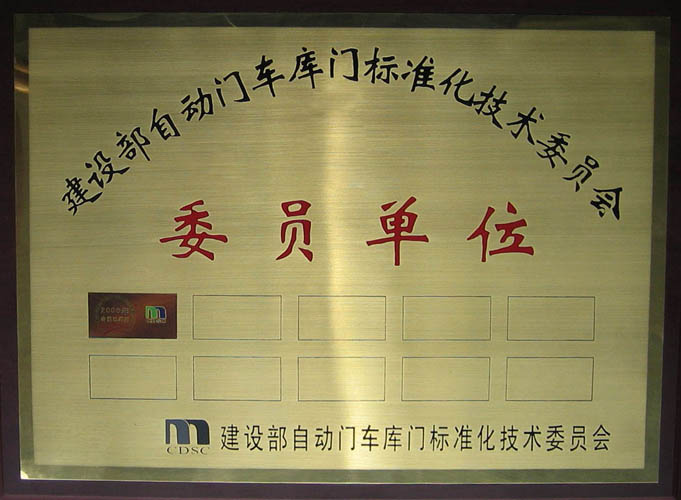 建设部自动门车库门标准化技术委员会
委员单位
CDSC
建设部自动门车库门标准化技术委员会